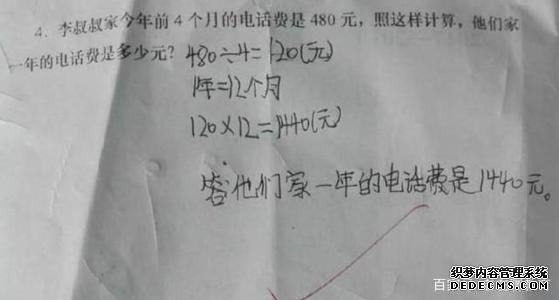 4. 李叔叔家今年前 4 个月的电话费是 480 元，照这样计算，他们家
一年的电话费是多少元？ 480÷4=120(元)
1年=12个月
120×12=1440(元)
答:他们家一年的电话费是1440元。
百
织梦内容管理系统
DEDECMS.COM